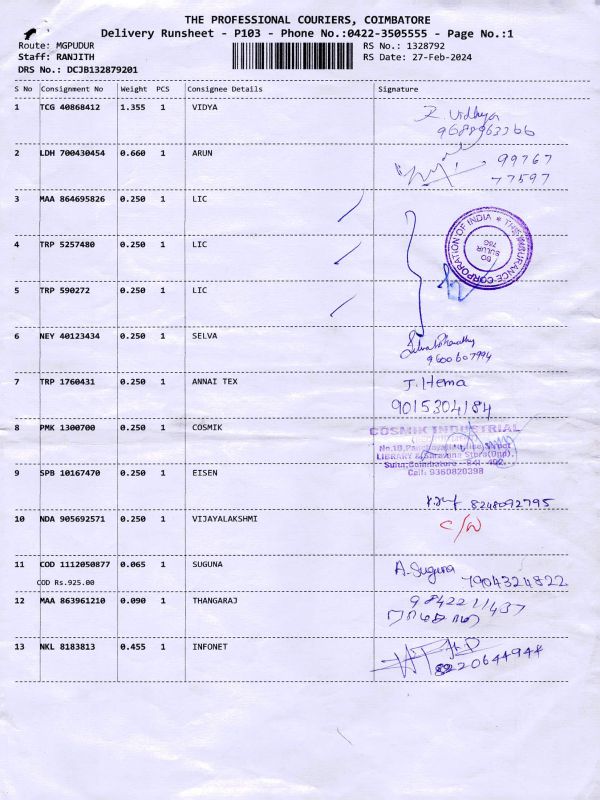 THE PROFESSIONAL COURIERS, COIMBATORE
Delivery Runsheet - P103 - Phone No.:0422-3505555 - Page No.:1
Route: MGPUDUR RS No.: 1328792
Staff: RANJITH RS Date: 27-Feb-2024
DRS No.: DCJB132879201
S No Consignment No Weight PCS Consignee Details Signature
1 TCG 40868412 1.355 1 VIDYA
R. Vidhya
9688963266
2 LDH 700430454 0.660 1 ARUN
99767
77597
3 MAA 864695826 0.250 1 LIC
4 TRP 5257480 0.250 1 LIC
THE LIFE INSURANCE CORPORATION OF INDIA
BO
SULUR
5 TRP 590272 0.250 1 LIC
6 NEY 40123434 0.250 1 SELVA
9600607994
7 TRP 1760431 0.250 1 ANNAI TEX J. Hema
9015304184
8 PMK 1300700 0.250 1 COSMIK COSMIK INDUSTRIAL
LIBRARY
Coimbatore - 641 402
Cell: 9360820398
9 SPB 10167470 0.250 1 EISEN
8248092795
10 NDA 905692571 0.250 1 VIJAYALAKSHMI
11 COD 1112050877 0.065 1 SUGUNA A. Suguna
COD Rs.925.00 7904324822
12 MAA 863961210 0.090 1 THANGARAJ 9842211437
13 NKL 8183813 0.455 1 INFONET
8220644944